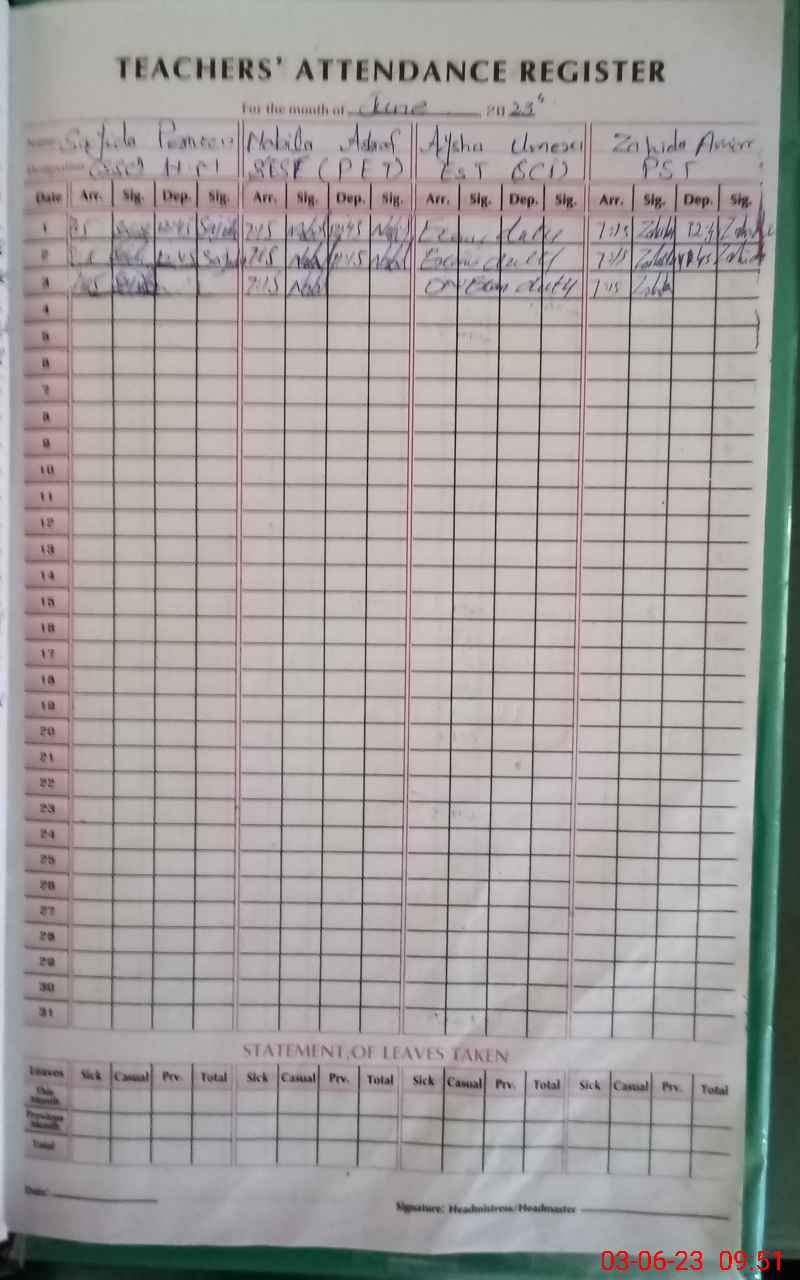 TEACHERS' ATTENDANCE REGISTER
For the month of June 2023
Name Sajida Nabila Ashraf Aysha Zahida
Designation H.M SESE (PET) EST (SCI) PST
Date Arr. Sig. Dep. Sig. Arr. Sig. Dep. Sig. Arr. Sig. Dep. Sig. Arr. Sig. Dep. Sig.
1 12:45 Sajida 7:15 12:45 Exam duty 7:15 Zahida 12:45 Zahida
2 12:45 Sajida 7:15 12:45 Exam duty 7:15 Zahida 12:45 Zahida
3 7:15 ON Exam duty 7:15 Zahida
4
5
6
7
8
9
10
11
12
13
14
15
16
17
18
19
20
21
22
23
24
25
26
27
28
29
30
31
STATEMENT OF LEAVES TAKEN
Leaves Sick Casual Prv. Total Sick Casual Prv. Total Sick Casual Prv. Total Sick Casual Prv. Total
This Month
Previous Month
Total
Date:
Signature: Headmistress/Headmaster
03-06-23 09:51